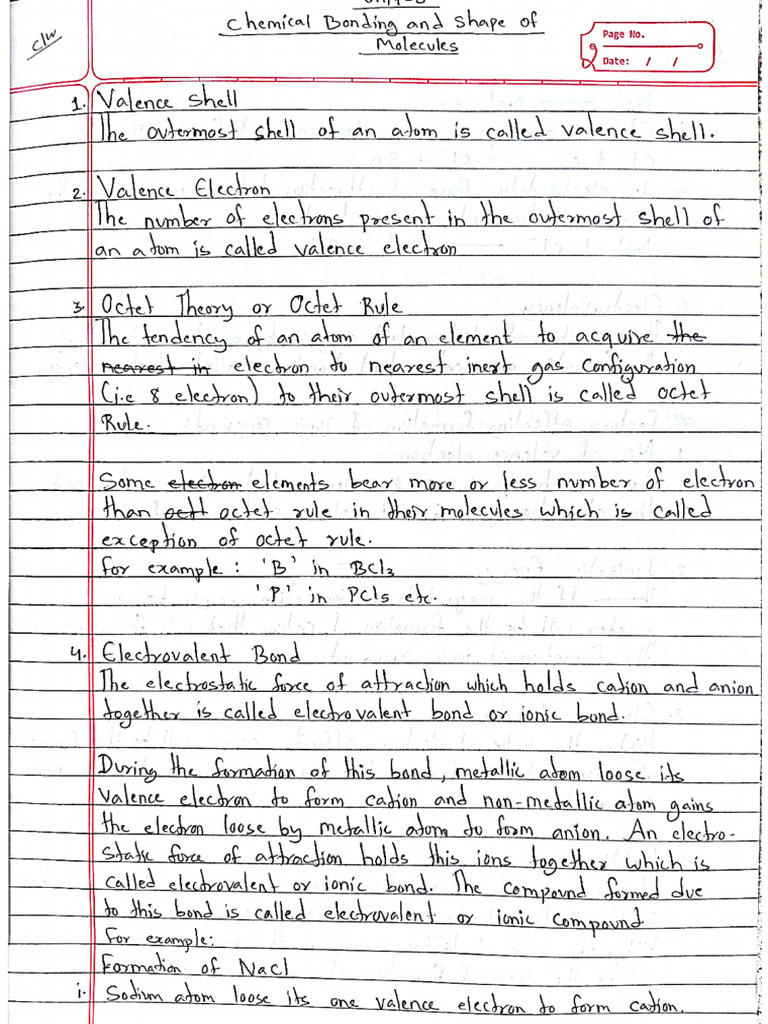 Chemical Bonding and Shape of
Molecules
c/w
Page No.
Date: / /
1. Valence shell
The outermost shell of an atom is called valence shell.
2. Valence Electron
The number of electrons present in the outermost shell of
an atom is called valence electron
3. Octet Theory or Octet Rule
The tendency of an atom of an element to acquire the
nearest in electron to nearest inert gas configuration
(i.e 8 electron) to their outermost shell is called octet
Rule.
Some electron elements bear more or less number of electron
than octt octet rule in their molecules which is called
exception of octet rule.
for example : 'B' in BCl3
'P' in PCl5 etc.
4. Electrovalent Bond
The electrostatic force of attraction which holds cation and anion
together is called electrovalent bond or ionic bond.
During the formation of this bond, metallic atom loose its
valence electron to form cation and non-metallic atom gains
the electron loose by metallic atom to form anion. An electro-
static force of attraction holds this ions together which is
called electrovalent or ionic bond. The compound formed due
to this bond is called electrovalent or ionic compound
For example:
Formation of NaCl
i. Sodium atom loose its one valence electron to form cation.